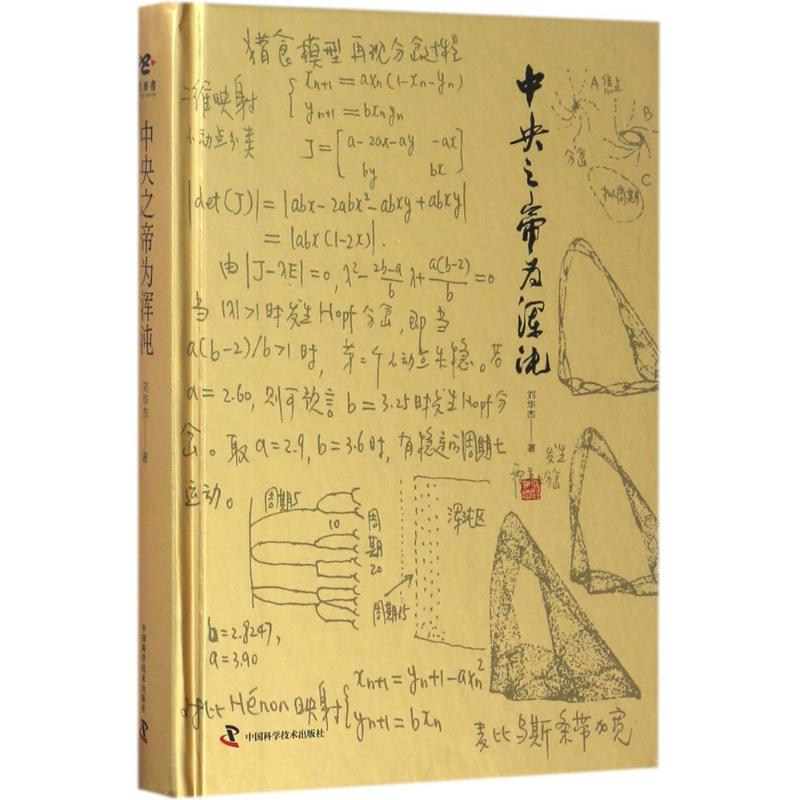 中央之帝为浑沌
刘华杰 著
中国科学技术出版社
猎食模型再现分岔过程
二维映射
不动点分类
x_{n+1} = ax_n(1-x_n-y_n)
y_{n+1} = bx_ny_n
J = [a-2ax-ay -ax
by bx]
|det(J)| = |abx-2abx²-abxy+abxy|
= |abx(1-2x)|.
由|J-λE|=0, λ²-\frac{2b-a}{b}λ+\frac{a(b-2)}{b}=0
当|λ|>1时发生Hopf分岔,即当
a(b-2)/b>1时,第一个不动点失稳。若
a=2.60,则可预言b=3.25时发生Hopf分
岔。取a=2.9, b=3.6时,有稳定的周期七
运动。
周期5
10
周期20
周期15
浑沌区
b=2.8247,
a=3.90
对比Hénon映射
x_{n+1} = y_n+1-ax_n²
y_{n+1} = bx_n
中国科学技术出版社
中央之帝为浑沌
刘华杰 著
A 焦点
B
分岔
C
拟周期
发生
分岔